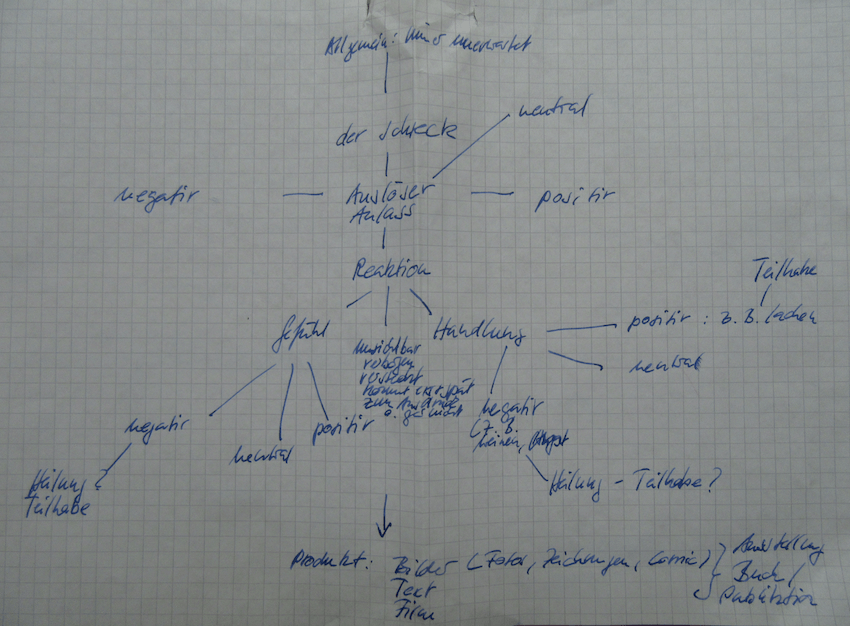 Allgemein: unerwartet
der Schreck
neutral
negativ
Auslöser
Anlass
positiv
Reaktion
Teilhabe
Gefühl
Handlung
positiv : z. B. lachen
neutral
unsichtbar
verzögert
versteckt
kommt erst spät
zum Ausdruck
o. gar nicht
negativ
neutral
positiv
negativ
(z. B.
weinen, Angst
Heilung
Teilhabe
Heilung - Teilhabe?
Produkt: Bilder (Fotos, Zeichnungen, Comic)
Text
Film
Ausstellung
Buch /
Publikation